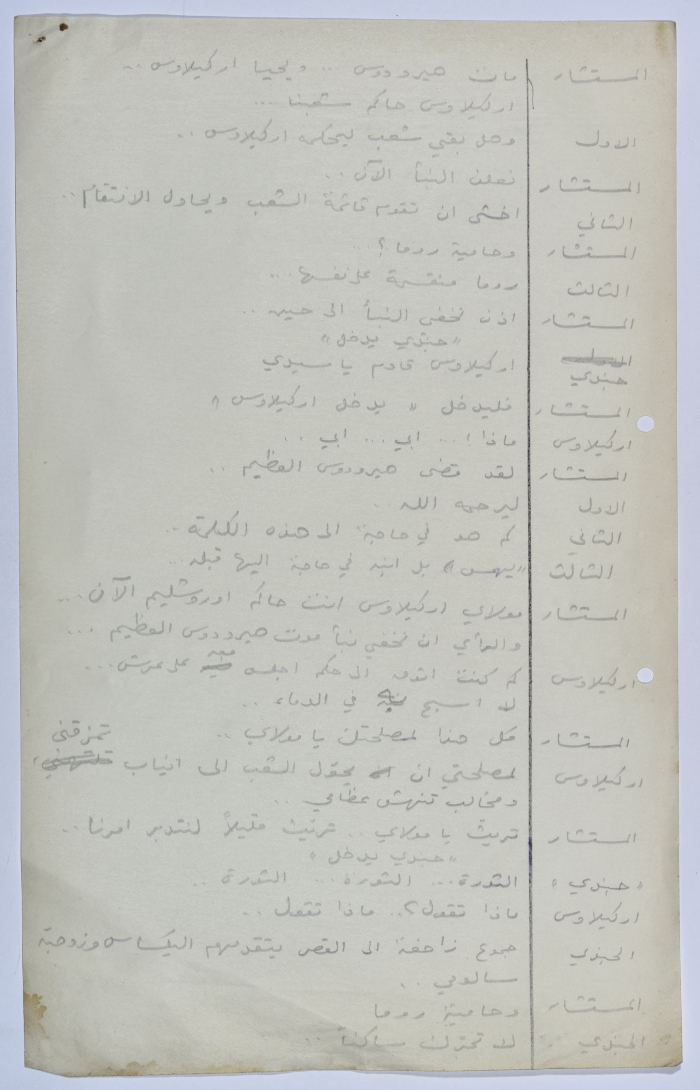 المستشار مات هيرودوس ... ويحيا اركيلاوس ..
اركيلاوس حاكم شعبنا ...
الاول وهل بقي شعب ليحكمه اركيلاوس ..
المستشار نعلن النبأ الآن ..
الثاني اخشى ان تقوم قائمة الشعب ويحاول الانتقام ..
المستشار وحامية روما ؟ ..
الثالث روما منقسمة على نفسها ...
المستشار اذن نخفي النبأ الى حين ..
" جندي يدخل "
جندي اركيلاوس قادم يا سيدي
المستشار فليدخل " يدخل اركيلاوس "
اركيلاوس ماذا ! ... ابي ... ابي ..
المستشار لقد قضى هيرودوس العظيم ..
الاول ليرحمه الله ..
الثاني كم هو في حاجة الى هذه الكلمة ..
الثالث "يهمس" بل ابنه في حاجة اليها قبله ...
المستشار مولاي اركيلاوس انت حاكم اورشليم الآن ...
والرأي ان نخفي نبأ موت هيرودوس العظيم ...
اركيلاوس كم كنت اتوق الى حكم اجلس معه على عرش ...
لا اسبح في الدماء ..
المستشار كل هذا لمصلحتك يا مولاي ..
اركيلاوس لمصلحتي ان يتحول الشعب الى انياب تمزقني
ومخالب تنهش عظامي ..
المستشار تريث يا مولاي .. تريث قليلاً لنتدبر امرنا ..
" جندي يدخل "
" جندي " الثورة ... الثورة ... الثورة ..
اركيلاوس ماذا تقول ؟ .. ماذا تقول ..
الجندي جموع زاحفة الى القصر يتقدمهم اليكساس وزوجته
سالومي ..
المستشار وحامية روما
الجندي لا تحرك ساكناً ..